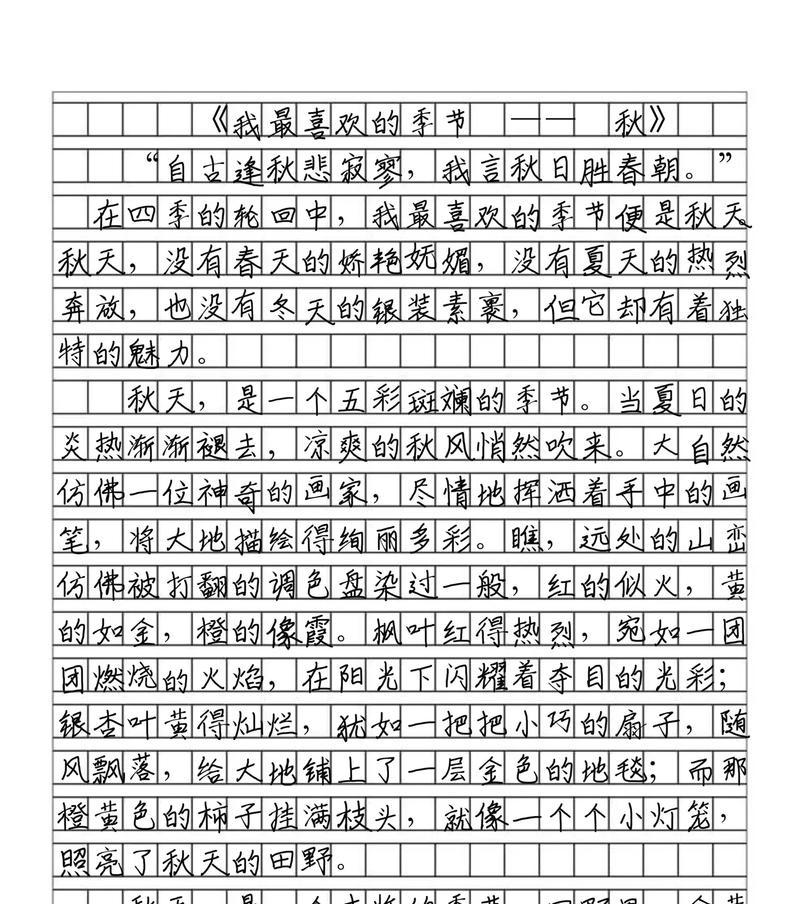 《我最喜欢的季节 —— 秋》
“自古逢秋悲寂寥，我言秋日胜春朝。”
在四季的轮回中，我最喜欢的季节便是秋天。
秋天，没有春天的娇艳妩媚，没有夏天的热烈
奔放，也没有冬天的银装素裹，但它却有着独
特的魅力。
秋天，是一个五彩斑斓的季节。当夏日的
炎热渐渐褪去，凉爽的秋风悄然吹来。大自然
仿佛一位神奇的画家，尽情地挥洒着手中的画
笔，将大地描绘得绚丽多彩。瞧，远处的山峦
仿佛被打翻的调色盘染过一般，红的似火，黄
的如金，橙的像霞。枫叶红得热烈，宛如一团
团燃烧的火焰，在阳光下闪耀着夺目的光彩；
银杏叶黄得灿烂，犹如一把把小巧的扇子，随
风飘落，给大地铺上了一层金色的地毯；而那
橙黄色的柿子挂满枝头，就像一个个小灯笼，
照亮了秋天的田野。